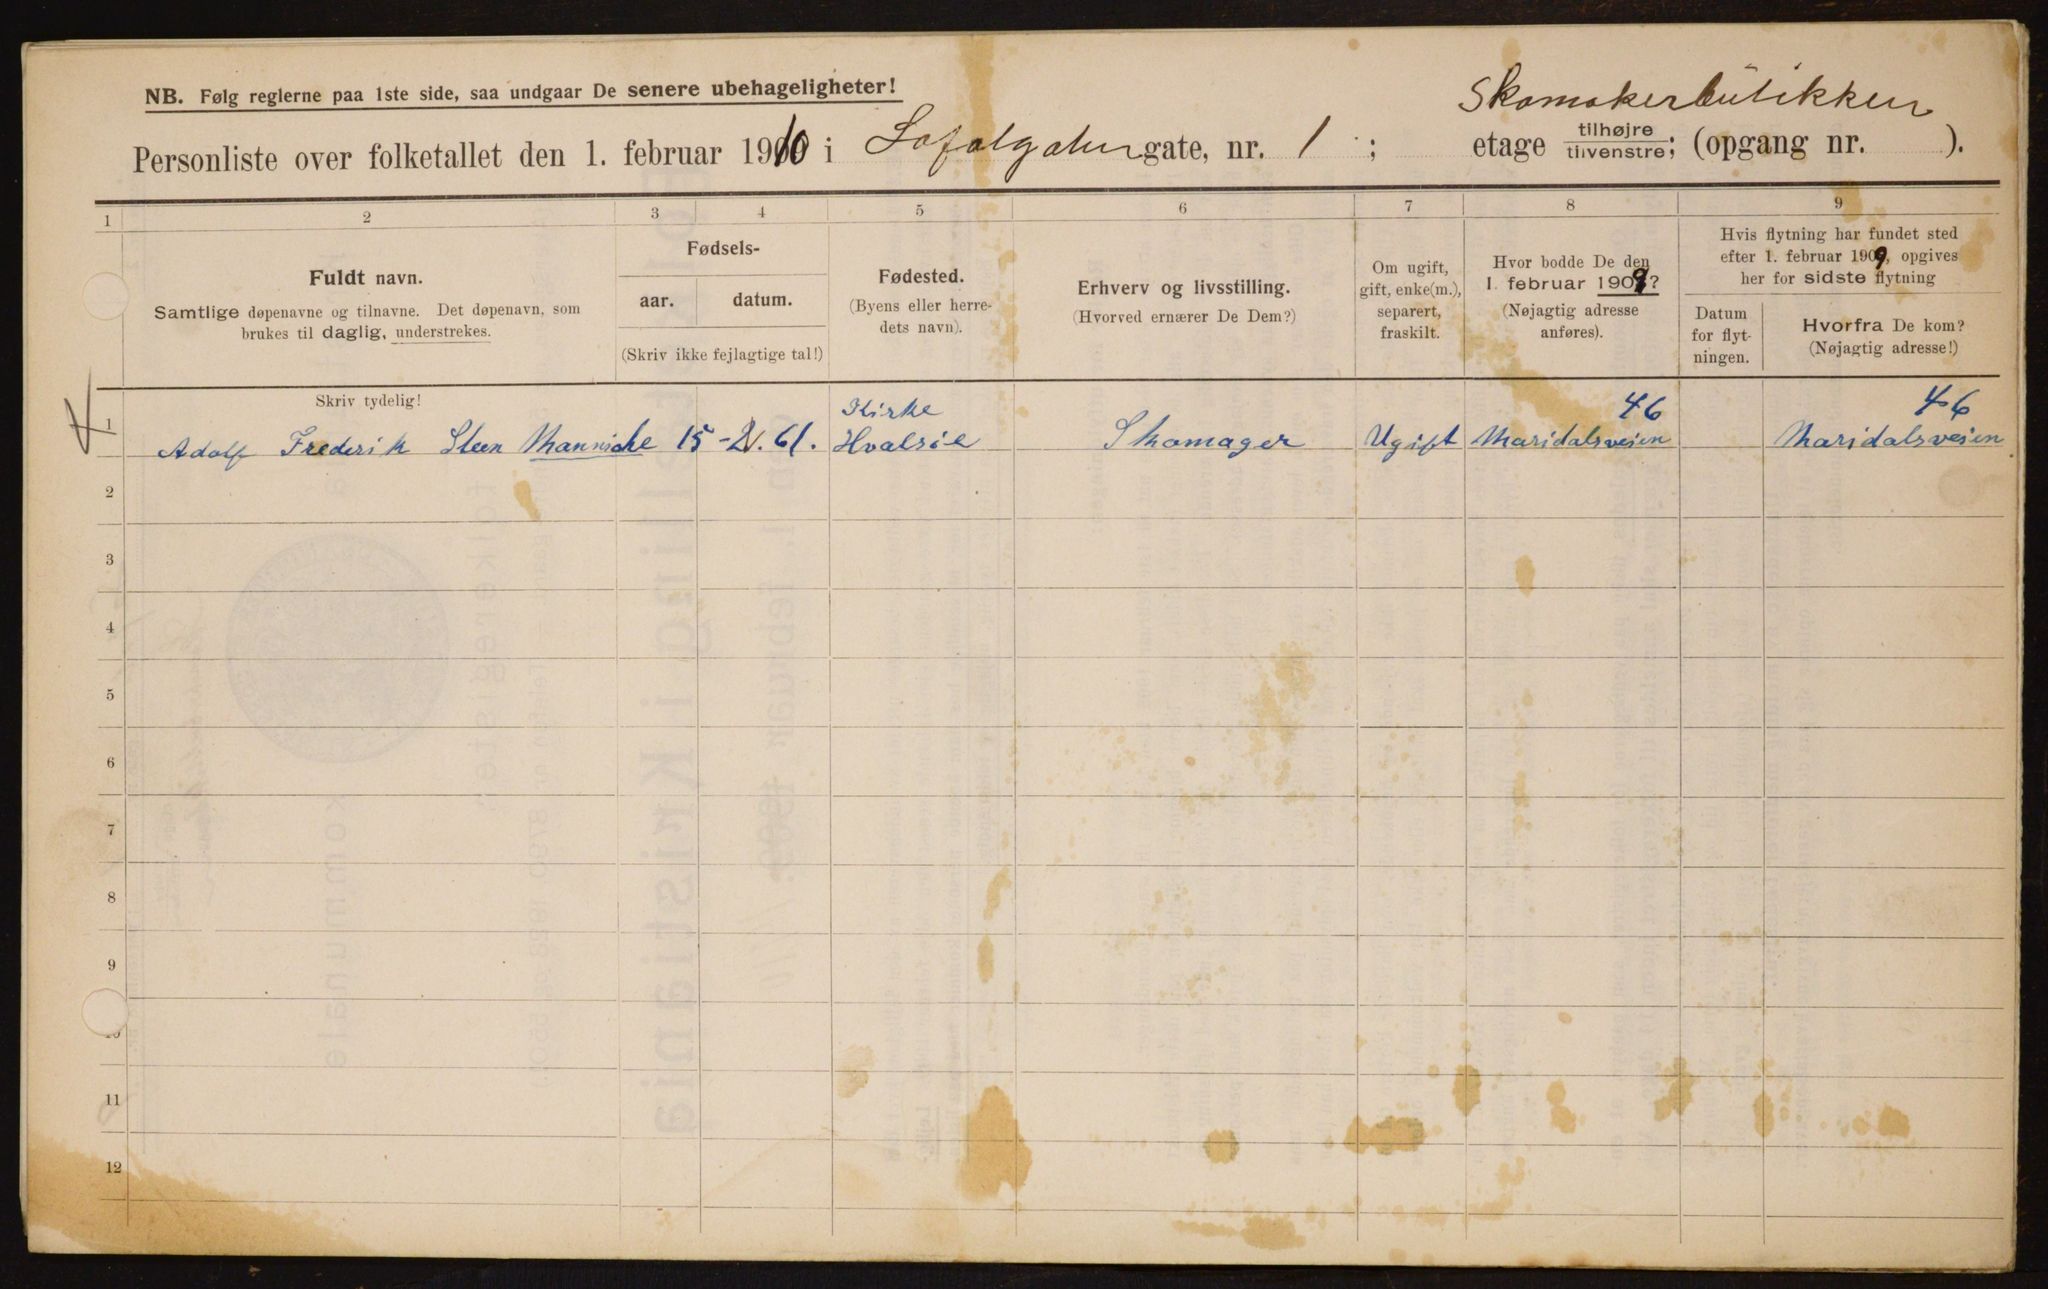 NB. Følg reglerne paa 1ste side, saa undgaar De senere ubehageligheter!
Skomakerbutikken
Personliste over folketallet den 1. februar 1910 i gate, nr. 1; etage tilhøjre/tilvenstre; (opgang nr. ).
1 2 3 4 5 6 7 8 9
Fuldt navn.
Samtlige døpenavne og tilnavne. Det døpenavn, som
brukes til daglig, understrekes.
Fødsels-
aar. datum.
(Skriv ikke fejlagtige tal!)
Fødested.
(Byens eller herre-
dets navn).
Erhverv og livsstilling.
(Hvorved ernærer De Dem?)
Om ugift,
gift, enke(m.),
separert,
fraskilt.
Hvor bodde De den
1. februar 1909?
(Nøjagtig adresse
anføres).
Hvis flytning har fundet sted
efter 1. februar 1909, opgives
her for sidste flytning
Datum
for flyt-
ningen.
Hvorfra De kom?
(Nøjagtig adresse!)
Skriv tydelig!
Kirke 46 46
1 Adolf Frederik Steen Manniche 15-2.61. Hvalsøe Skomager Ugift Maridalsveien Maridalsveien
2
3
4
5
6
7
8
9
10
11
12